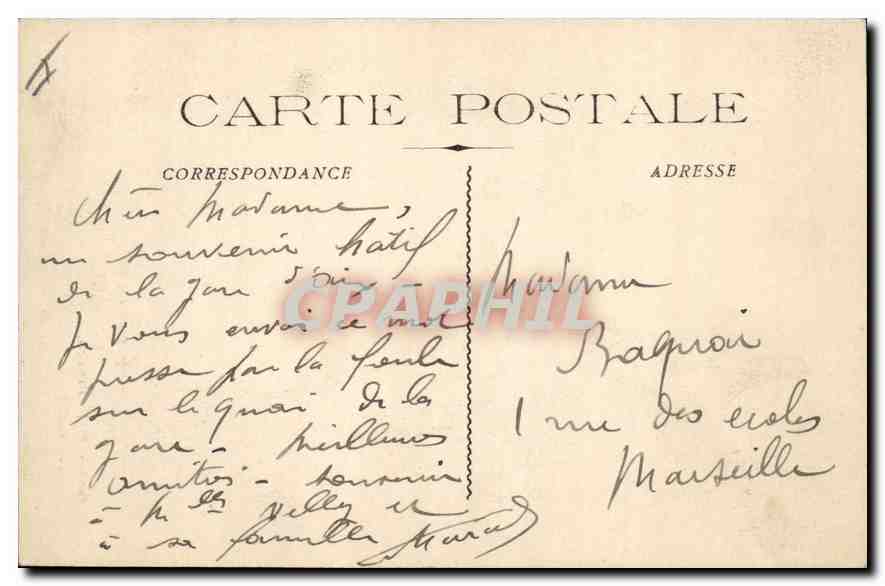 CARTE POSTALE
CORRESPONDANCE
ADRESSE
Chère Madame,
un souvenir hatif
de la gare d'Aix -
Je vous envoi ce mot
pressé par la foule
sur le quai de la
gare - meilleures
amitiés - souvenir
à Melles Velly et
à sa famille
Madame
1 rue des écoles
Marseille
CPAPHIL